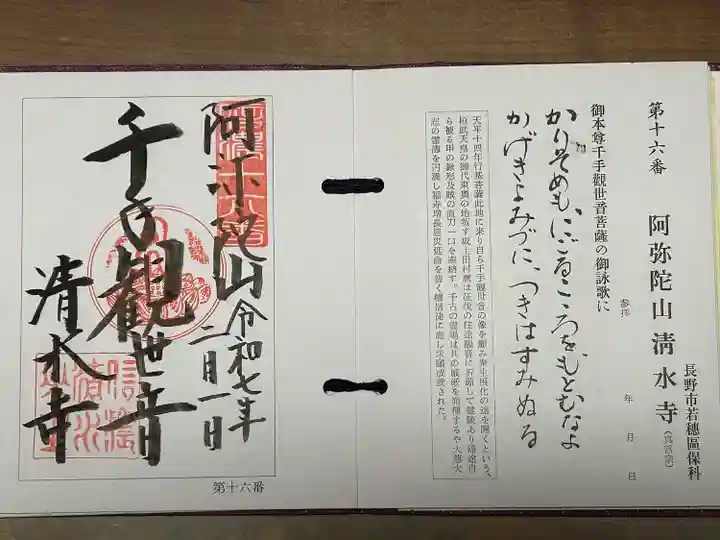 第十六番
阿弥陀山清水寺(真言宗)
長野市若穂區保科
参拝 年 月 日
御本尊千手觀世音菩薩の御詠歌に
かりそめも、にごるこころをもとむなよ
かげきよみづに、つきはすみぬる
天平十四年行基菩薩此地に来り自ら千手觀世音の像を刻み衆生現化の途を開くという、
桓武天皇の御代東奥の地叛す坂上田村麿は征伐の往途観音に祈願して靈験あり帰途自
ら被る甲の鍬形及賊の直刀一口を奉納す。千古の靈場は其の威厳を発揮するや大慈大
悲の靈徳を円満し福寿増長息災延命を
阿弥陀山
令和七年
二月一日
千手觀世音
清水寺
第十六番